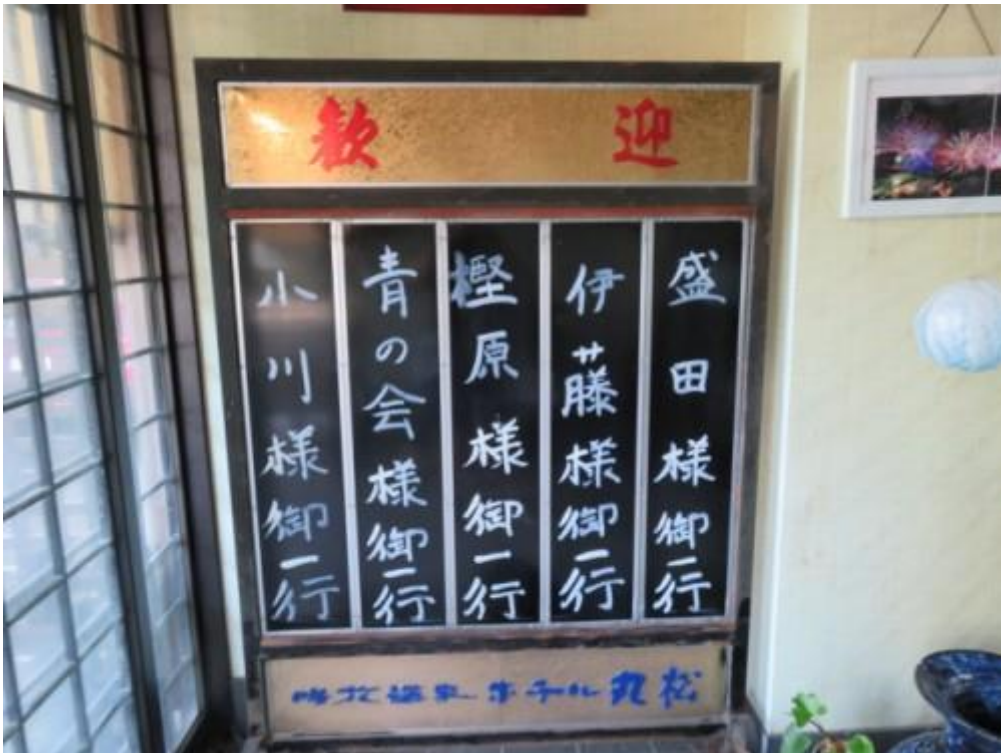 歓迎
盛田様御一行
伊藤様御一行
樫原様御一行
青の会様御一行
小川様御一行
温泉ホテル丸松